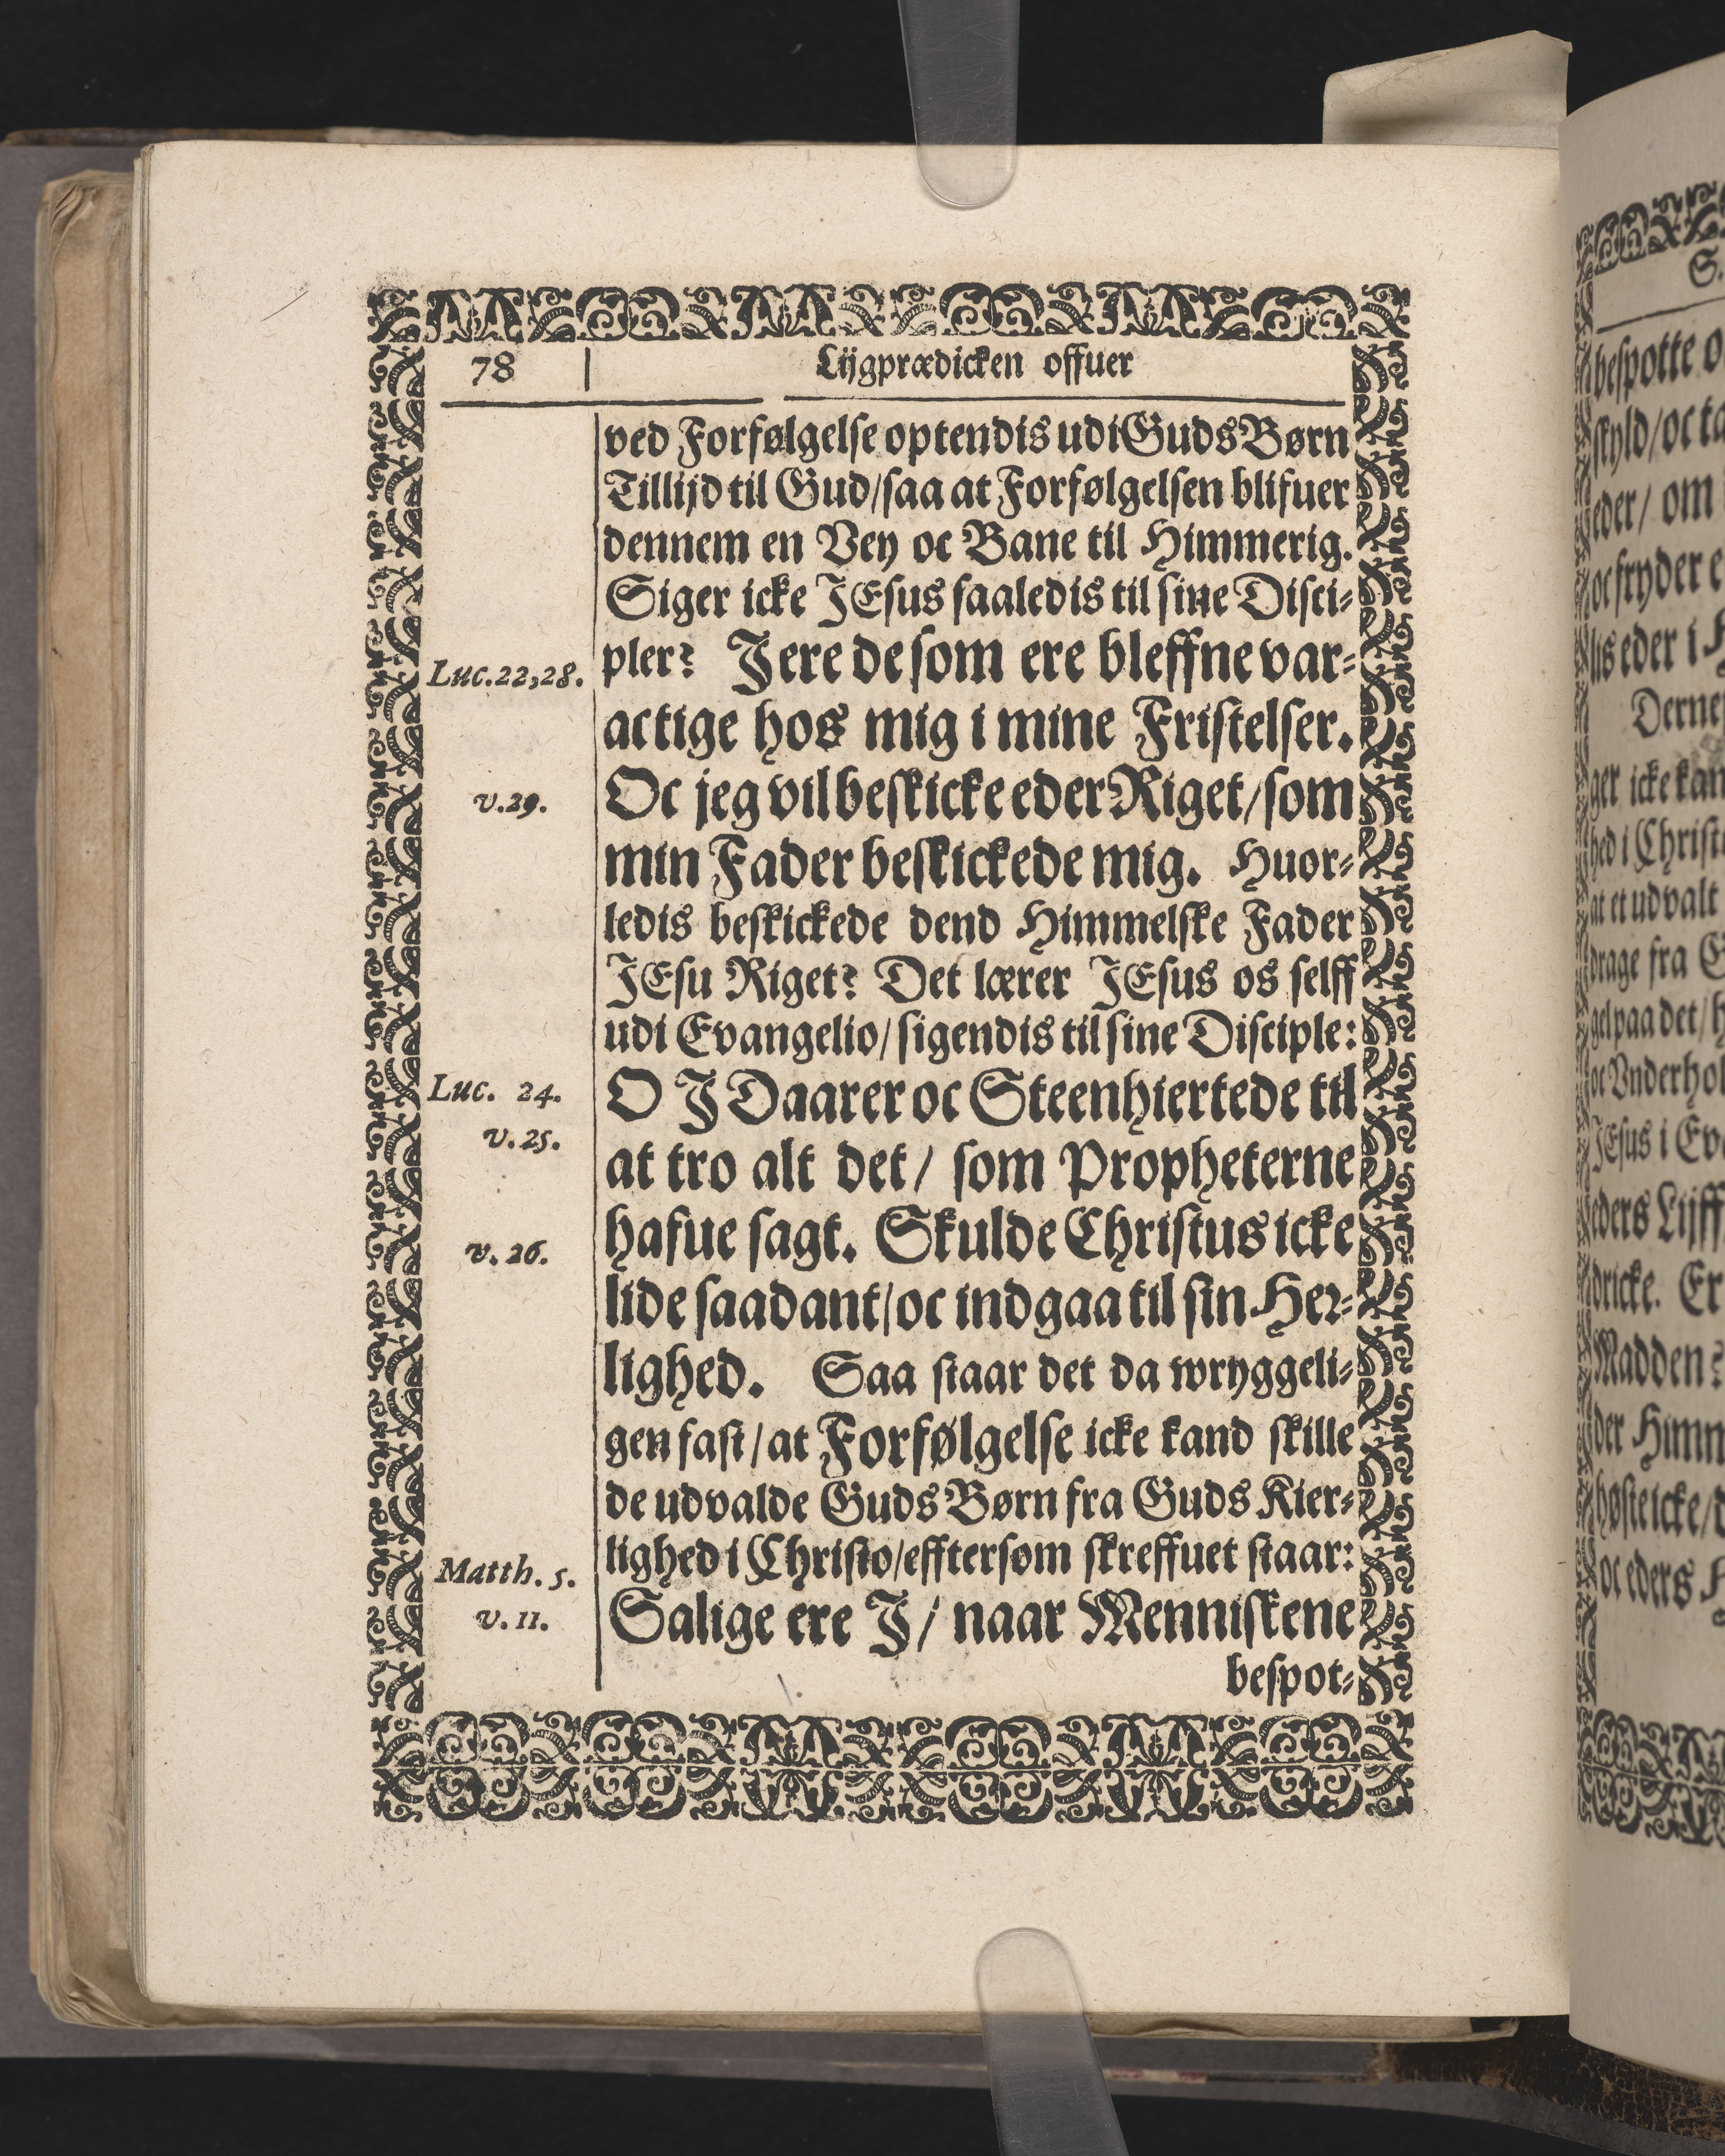 78
Lijgprædicken offuer
ved Forfølgelse optendis udi Guds Børn
Tillijd til Gud/saa at Forfølgelsen blifuer
dennem en Vey oc Bane til Himmerig.
Siger icke JEsus saaledis til sine Disci-
Luc.22,28.
pler? J ere de som ere bleffne var-
actige hos mig i mine Fristelser.
v.29.
Oc jeg vil beskicke eder Riget/som
min Fader beskickede mig. Huor-
ledis beskickede dend Himmelske Fader
JEsu Riget? Det lærer JEsus os selff
udi Evangelio/ sigendis til sine Disciple:
Luc. 24.
v.25.
O J Daarer oc Steenhiertede til
at tro alt det/ som Propheterne
v. 26.
hafue sagt. Skulde Christus icke
lide saadant/oc indgaa til sin Her-
lighed. Saa staar det da wryggeli-
gen fast/at Forfølgelse icke kand skille
de udvalde Guds Børn fra Guds Kier-
lighed i Christo/efftersom skreffuet staar:
Matth. 5.
v. 11.
Salige ere J/ naar Menniskene
bespot-
S.
bespotte
skyld/oc
eder/ om
oc fryder
lis eder i
Derne
ger icke kan
hed i Christ
at et udvalt
drage fra
gel paa det/
oc Vnderhol
JEsus i Ev
eders Lijff
dricke. Er
Madden?
der Himm
høste icke/
oc eders